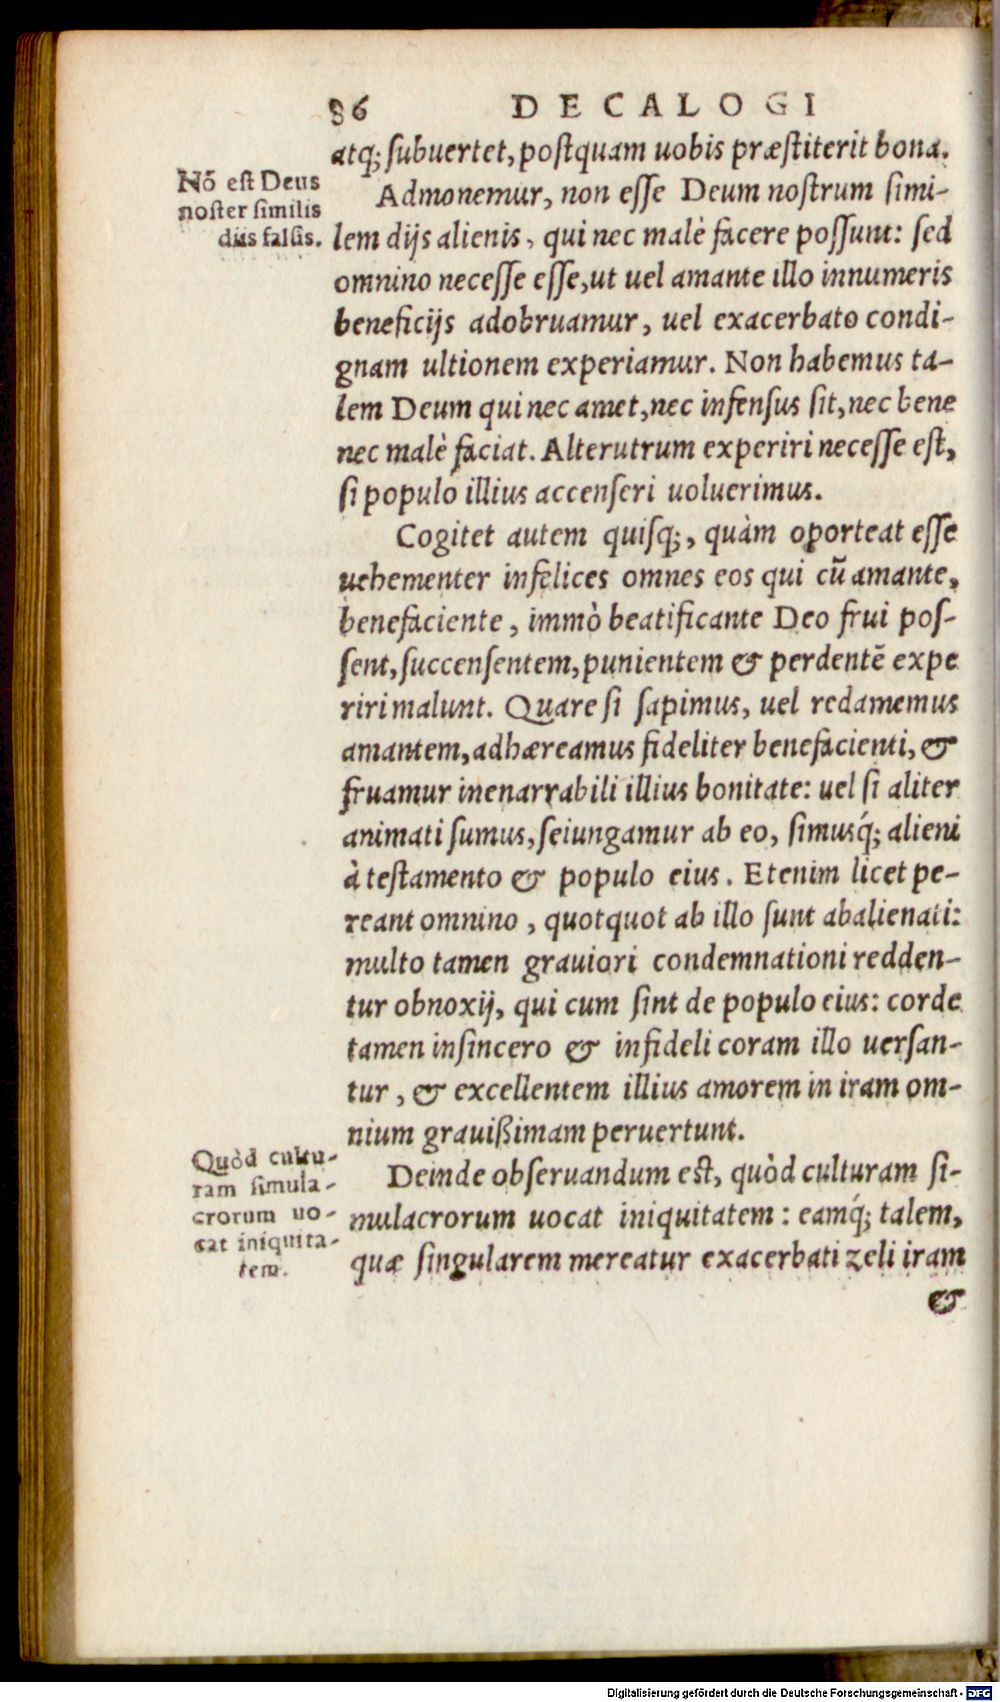 86 DECALOGI
atq; ſubuertet, poſtquam uobis præſtiterit bona.
Nõ eſt Deus
noſter ſimilis
diis falſis.
Admonemur, non eſſe Deum noſtrum ſimi-
lem dijs alienis, qui nec malè facere poſſunt: ſed
omnino neceſſe eſſe, ut uel amante illo innumeris
beneficijs adobruamur, uel exacerbato condi-
gnam ultionem experiamur. Non habemus ta-
lem Deum qui nec amet, nec infenſus ſit, nec bene
nec malè faciat. Alterutrum experiri neceſſe eſt,
ſi populo illius accenſeri uoluerimus.
Cogitet autem quiſq;, quàm oporteat eſſe
uehementer infelices omnes eos qui cũ amante,
benefaciente, immò beatificante Deo frui poſ-
ſent, ſuccenſentem, punientem & perdentẽ expe
riri malunt. Quare ſi ſapimus, uel redamemus
amantem, adhæreamus fideliter benefacienti, &
fruamur inenarrabili illius bonitate: uel ſi aliter
animati ſumus, ſeiungamur ab eo, ſimusq́; alieni
à teſtamento & populo eius. Etenim licet pe-
reant omnino, quotquot ab illo ſunt abalienati:
multo tamen grauiori condemnationi redden-
tur obnoxij, qui cum ſint de populo eius: corde
tamen inſincero & infideli coram illo uerſan-
tur, & excellentem illius amorem in iram om-
nium grauißimam peruertunt.
Quòd cultu-
ram ſimula-
crorum uo-
cat iniquita-
tem.
Deinde obſeruandum eſt, quòd culturam ſi-
mulacrorum uocat iniquitatem: eamq́; talem,
quæ ſingularem mereatur exacerbati zeli iram
&
Digitalisierung gefördert durch die Deutsche Forschungsgemeinschaft - DFG